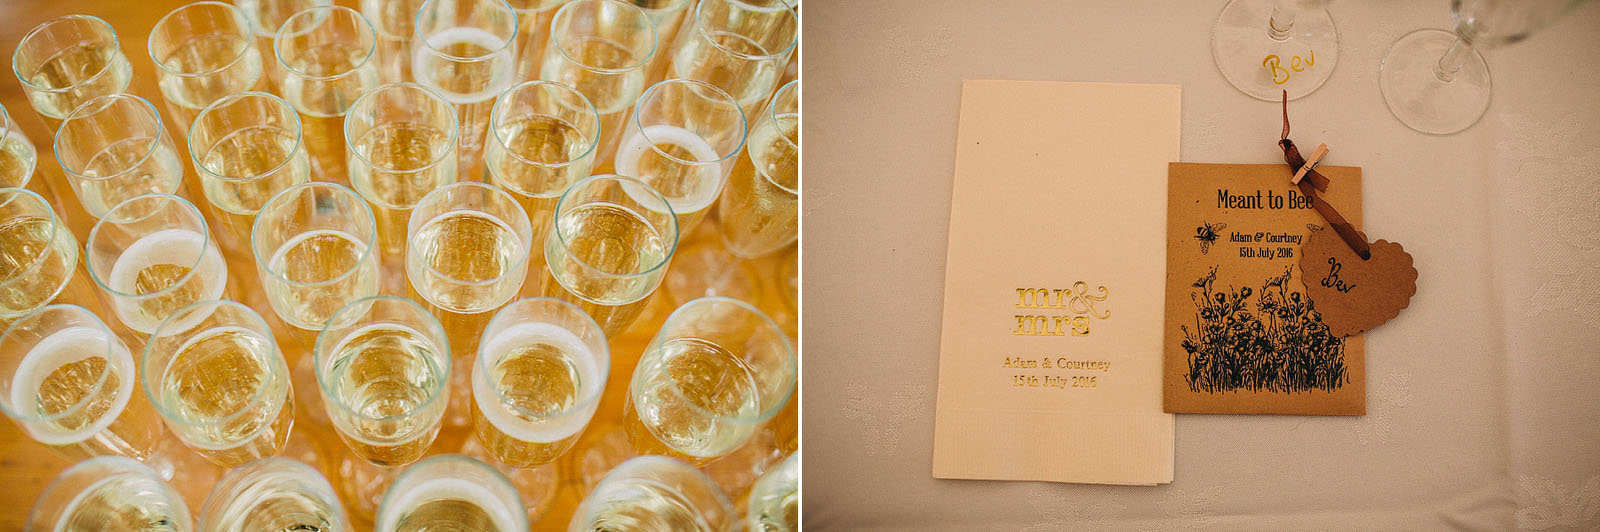 Bev
mr&
mrs
Adam & Courtney
15th July 2016
Meant to Bee
Adam & Courtney
15th July 2016
Bev